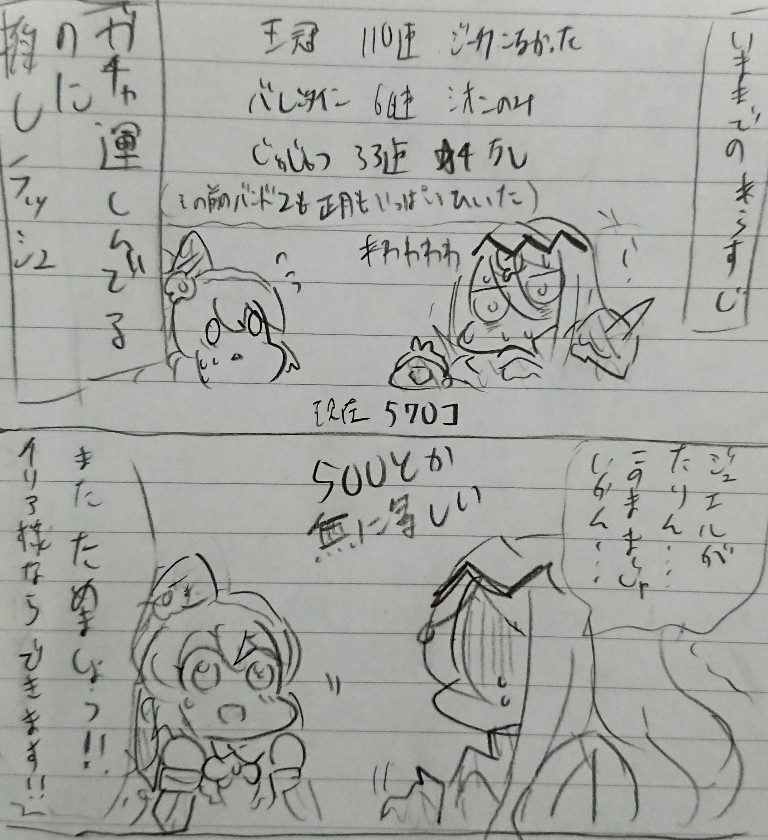 いままでのあらすじ
王冠 110連 ジークこなかった
バレンタイン 6連 シオンのみ
33連 ☆4 なし
(その前のバンド2も正月もいっぱいひいた)
ガチャ運しんでる
のに
推しラッシュ
あわわわわ
現在 570コ
ジュエルが
たりん……
このままじゃ
いかん……
500とか
無に等しい
また ためましょう!!
イリア様なら できます!!